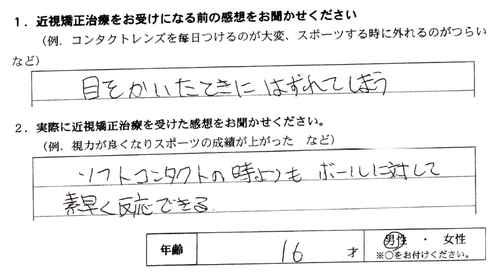 1. 近視矯正治療をお受けになる前の感想をお聞かせください
(例．コンタクトレンズを毎日つけるのが大変、スポーツする時に外れるのがつらい
など)
目をかいたときに はずれてしまう
2. 実際に近視矯正治療を受けた感想をお聞かせください。
(例．視力が良くなりスポーツの成績が上がった など)
ソフトコンタクトの時よりも ボールに対して
素早く反応できる
年齢 16 才 男性 ・ 女性
※○をお付けください。